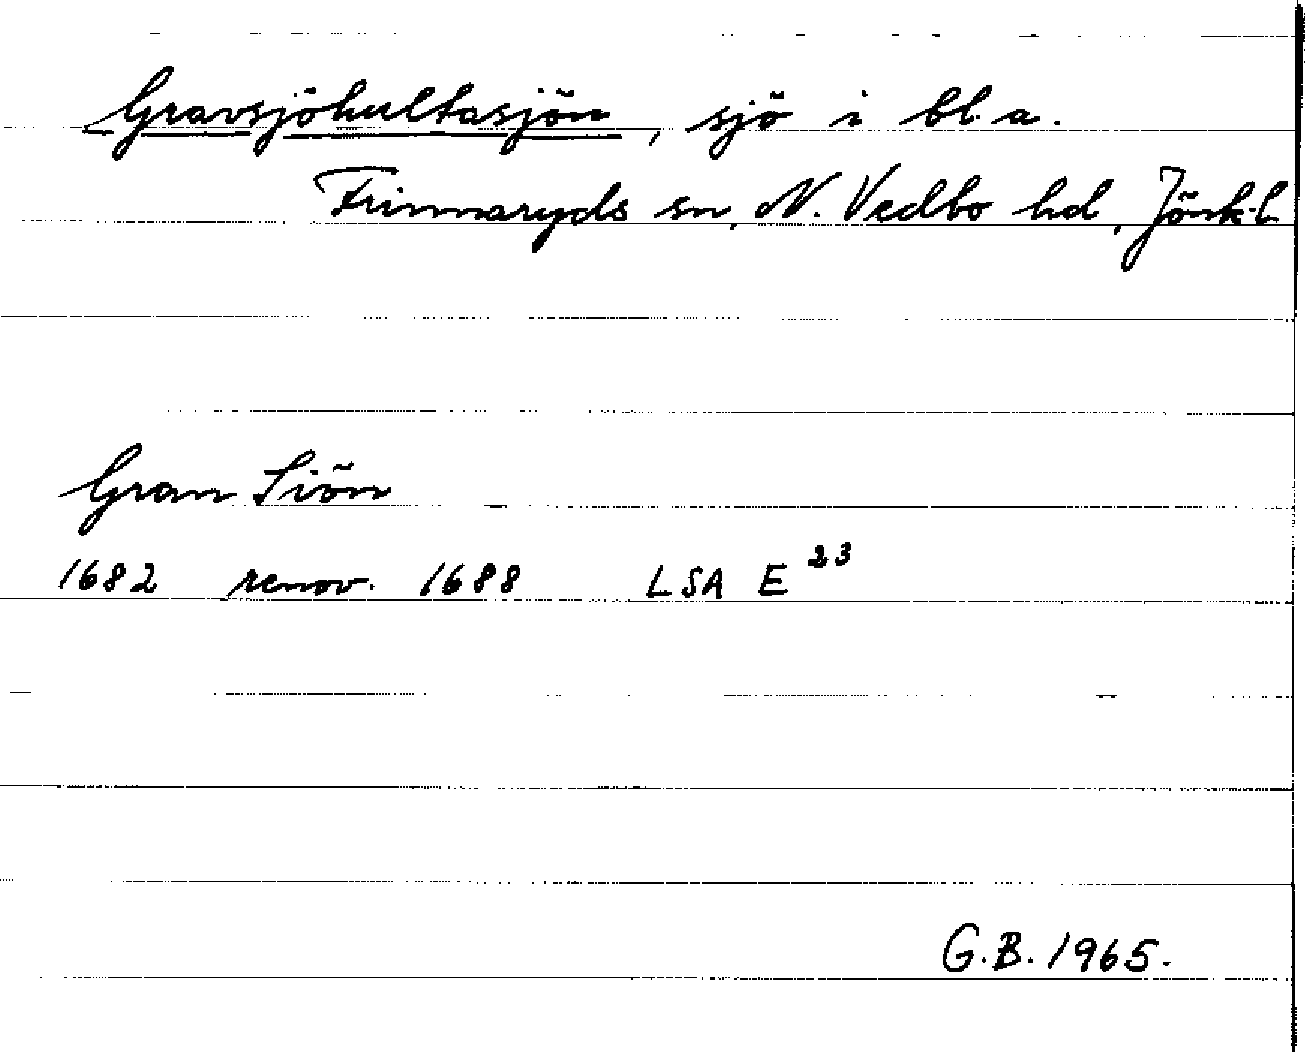 Gravsjöhultasjön, sjö i bl. a.
Frinnaryds sn, N. Vedbo hd, Jönk. l
Gran Siön
1682 renov. 1688 LSA E 23
G.B. 1965.